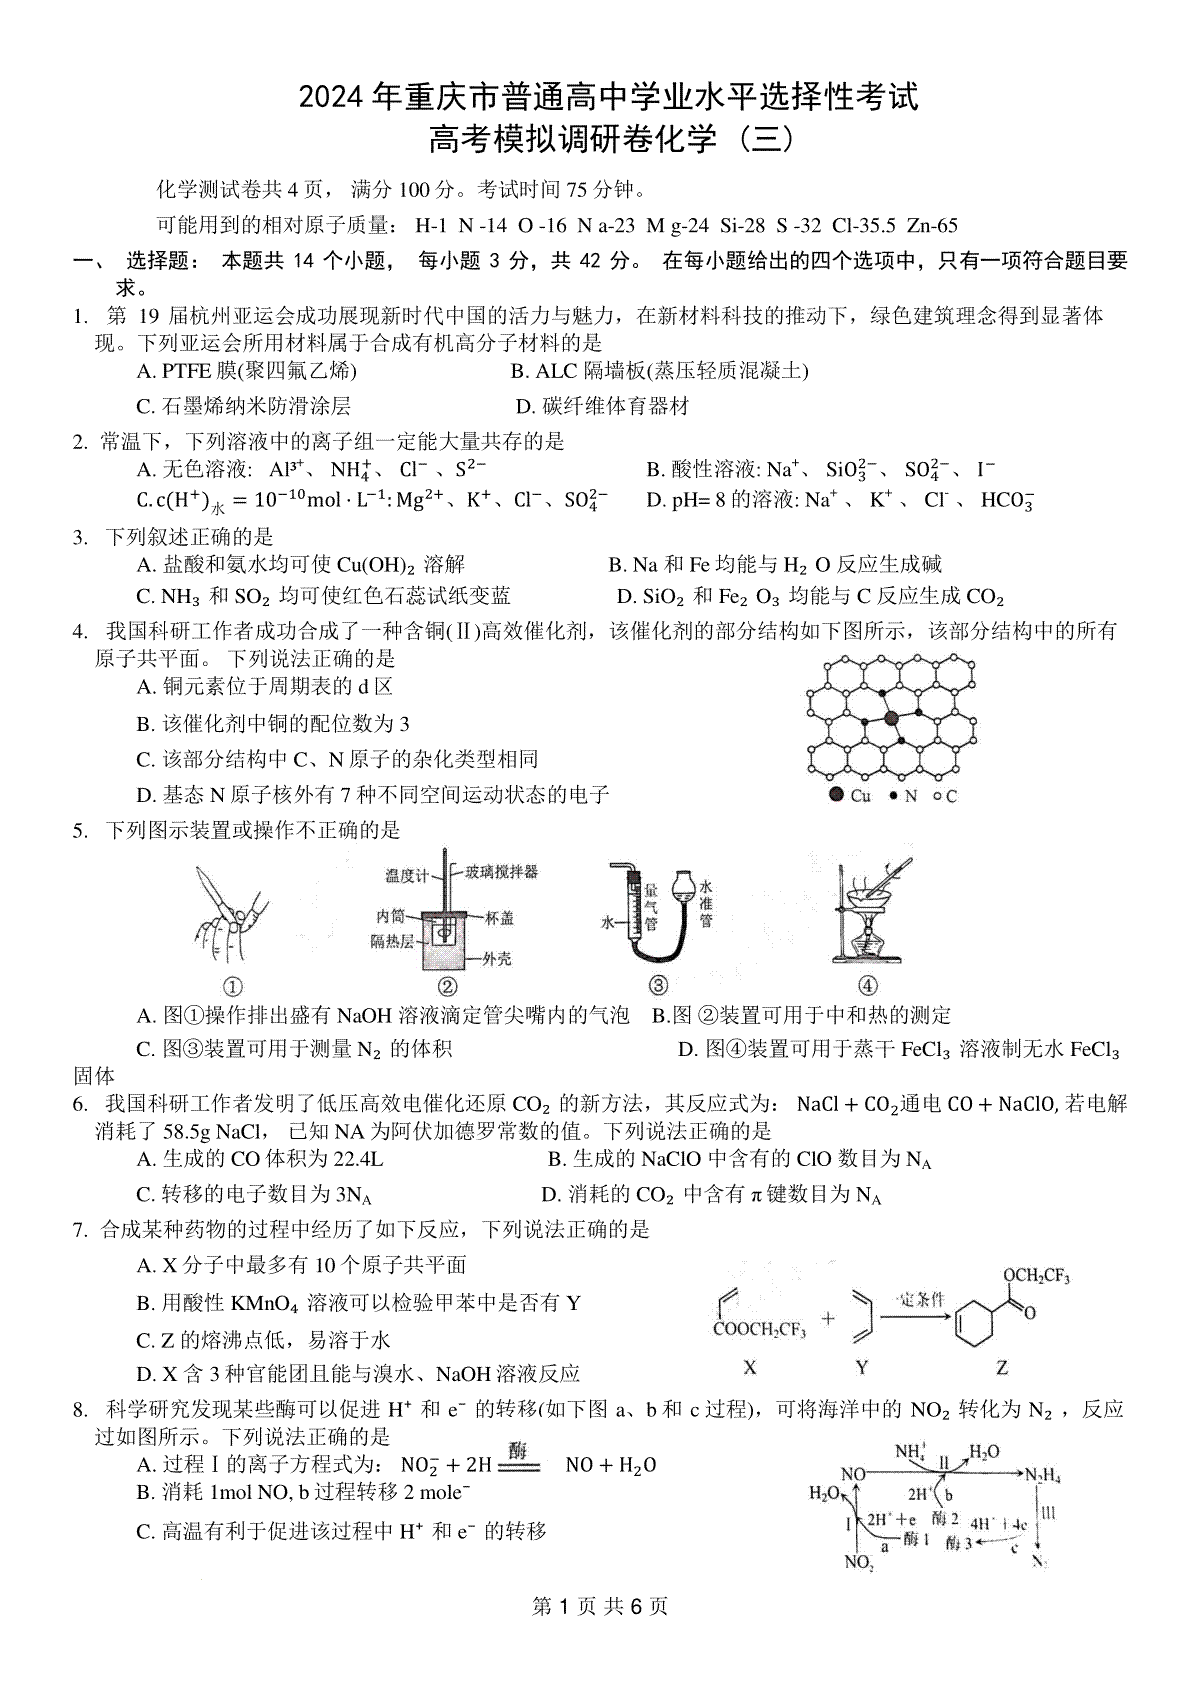 2024 年重庆市普通高中学业水平选择性考试
高考模拟调研卷化学 (三)
化学测试卷共 4 页， 满分 100 分。考试时间 75 分钟。
可能用到的相对原子质量： H-1 N -14 O -16 N a-23 M g-24 Si-28 S -32 Cl-35.5 Zn-65
一、 选择题： 本题共 14 个小题， 每小题 3 分，共 42 分。 在每小题给出的四个选项中，只有一项符合题目要
求。
1. 第 19 届杭州亚运会成功展现新时代中国的活力与魅力，在新材料科技的推动下，绿色建筑理念得到显著体
现。下列亚运会所用材料属于合成有机高分子材料的是
A. PTFE 膜(聚四氟乙烯) B. ALC 隔墙板(蒸压轻质混凝土)
C. 石墨烯纳米防滑涂层 D. 碳纤维体育器材
2. 常温下，下列溶液中的离子组一定能大量共存的是
A. 无色溶液: Al³⁺、 NH₄⁺、 Cl⁻ 、S²⁻ B. 酸性溶液: Na⁺、 SiO₃²⁻、 SO₄²⁻、 I⁻
C. c(H⁺)水 = 10⁻¹⁰mol · L⁻¹: Mg²⁺、K⁺、Cl⁻、SO₄²⁻ D. pH= 8 的溶液: Na⁺ 、 K⁺ 、 Cl⁻ 、 HCO₃⁻
3. 下列叙述正确的是
A. 盐酸和氨水均可使 Cu(OH)₂ 溶解 B. Na 和 Fe 均能与 H₂ O 反应生成碱
C. NH₃ 和 SO₂ 均可使红色石蕊试纸变蓝 D. SiO₂ 和 Fe₂ O₃ 均能与 C 反应生成 CO₂
4. 我国科研工作者成功合成了一种含铜(Ⅱ)高效催化剂，该催化剂的部分结构如下图所示，该部分结构中的所有
原子共平面。 下列说法正确的是
A. 铜元素位于周期表的 d 区
B. 该催化剂中铜的配位数为 3
C. 该部分结构中 C、N 原子的杂化类型相同
D. 基态 N 原子核外有 7 种不同空间运动状态的电子
Cu N C
5. 下列图示装置或操作不正确的是
温度计 玻璃搅拌器
内筒 杯盖
隔热层 外壳
水 量气管 水准管
① ② ③ ④
A. 图①操作排出盛有 NaOH 溶液滴定管尖嘴内的气泡 B.图 ②装置可用于中和热的测定
C. 图③装置可用于测量 N₂ 的体积 D. 图④装置可用于蒸干 FeCl₃ 溶液制无水 FeCl₃
固体
6. 我国科研工作者发明了低压高效电催化还原 CO₂ 的新方法，其反应式为： NaCl + CO₂通电 CO + NaClO, 若电解
消耗了 58.5g NaCl， 已知 NA 为阿伏加德罗常数的值。下列说法正确的是
A. 生成的 CO 体积为 22.4L B. 生成的 NaClO 中含有的 ClO 数目为 N_A
C. 转移的电子数目为 3N_A D. 消耗的 CO₂ 中含有 π 键数目为 N_A
7. 合成某种药物的过程中经历了如下反应，下列说法正确的是
A. X 分子中最多有 10 个原子共平面
B. 用酸性 KMnO₄ 溶液可以检验甲苯中是否有 Y
C. Z 的熔沸点低，易溶于水
D. X 含 3 种官能团且能与溴水、NaOH 溶液反应
COOCH₂CF₃ + 一定条件 OCH₂CF₃ O
X Y Z
8. 科学研究发现某些酶可以促进 H⁺ 和 e⁻ 的转移(如下图 a、b 和 c 过程)，可将海洋中的 NO₂ 转化为 N₂ ，反应
过如图所示。下列说法正确的是
A. 过程Ⅰ的离子方程式为： NO₂⁻ + 2H 酶 NO + H₂O
B. 消耗 1mol NO, b 过程转移 2 mole⁻
C. 高温有利于促进该过程中 H⁺ 和 e⁻ 的转移
NH₄⁺ II H₂O
NO N₂H₄
H₂O 2H⁺ b III
I 2H⁺+e 酶 2 4H⁺+4e
a 酶 1 酶 3 c
NO₂ N₂
第 1 页 共 6 页